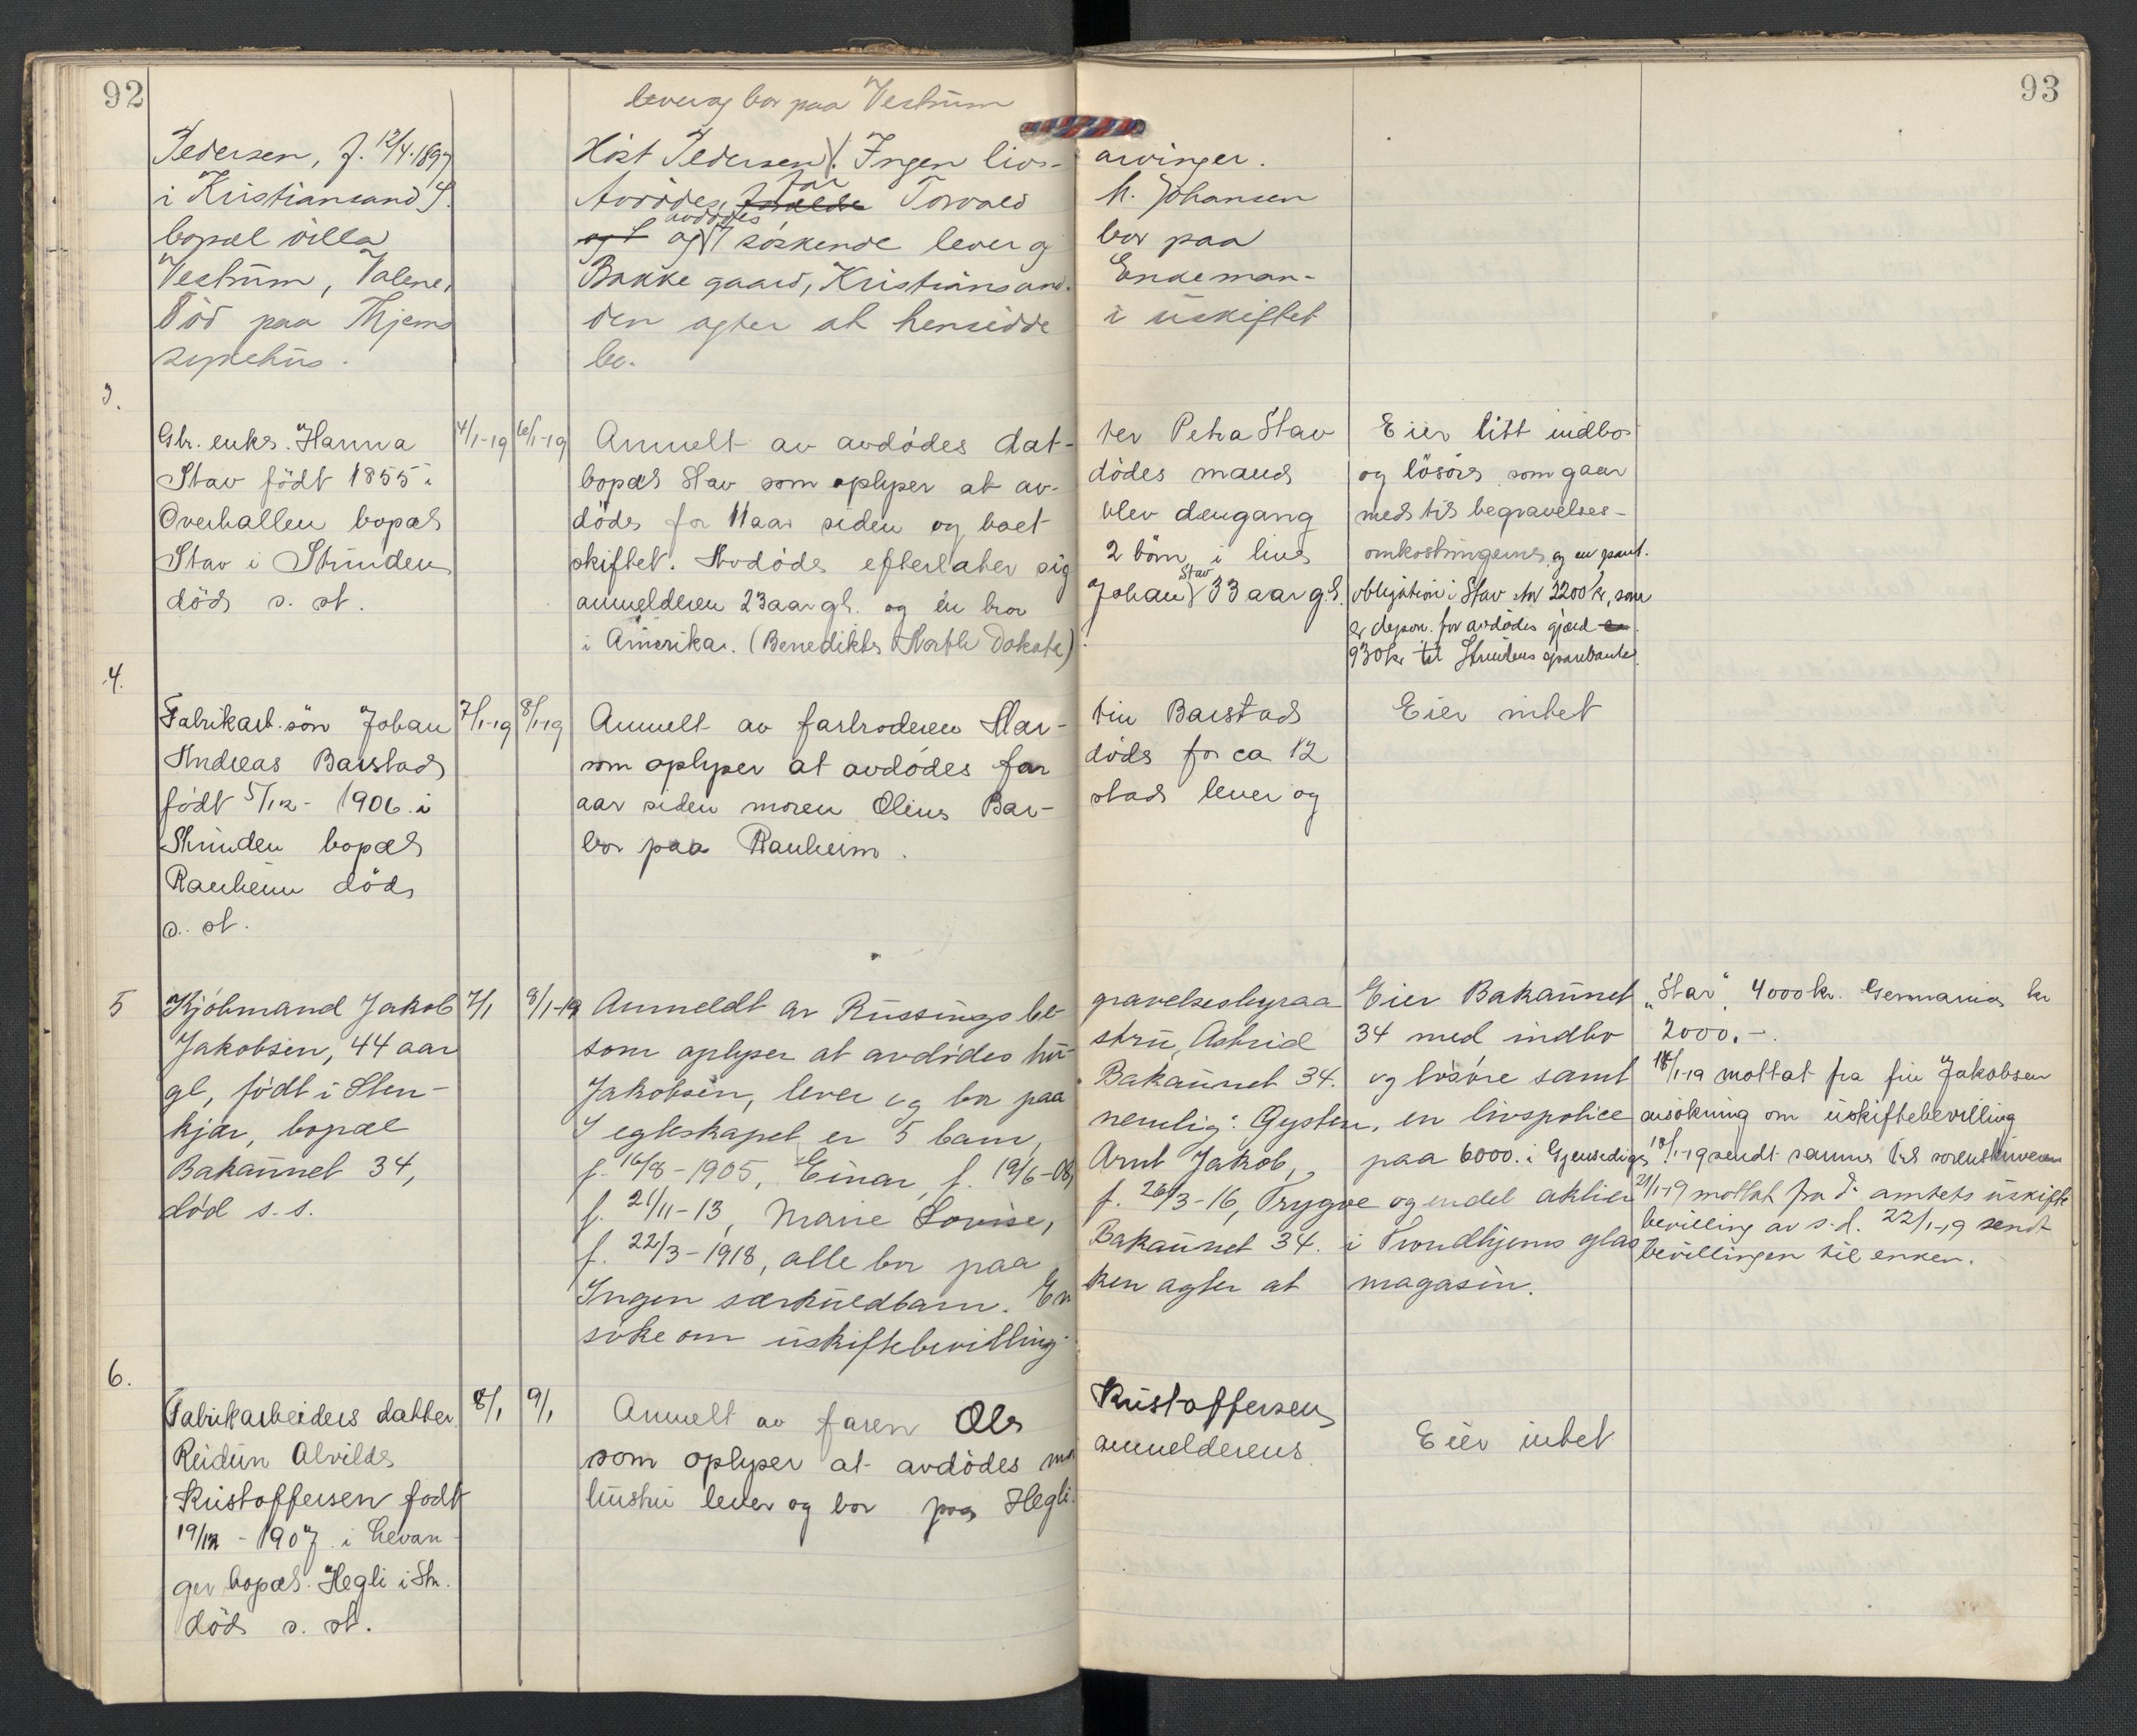 92
93
lever og bor paa Vestrum
Pedersen, f. 12/4.1897
i Kristiansand S.
bopæl villa
Vestrum, Valene,
Død paa Thjems
sykehus.
Høst Pedersen). Ingen livs- arvinger.
Avdødes far Torvald M. Johansen
og avdødes 7 søskende lever og bor paa
Bakke gaard, Kristiansand. Enkeman-
den agter at hensidde i uskiftet
bo.
3.
Gbr. enke. Hanna
Stav født 1855 i
Overhallen bopæl
Stav i Strinden
død s. st.
4/1-19
6/1-19
Anmelt av avdødes dat- ter Petra Stav
bopæl Stav som oplyser at av- dødes mand
døde for 11 aar siden og boet blev dengang
skiftet. Avdøde efterlater sig 2 børn i live
anmelderen 23 aar gl. og en bror Johan Stav 33 aar gl.
i Amerika. (Benedikte North Dokota)
Eier litt indbo
og løsøre som gaar
med til begravelses-
omkostningerne og en pant.
obligation i Stav stor 2200 kr, som
er depon. for avdødes gjæld
930 kr til Strindens sparebank
4.
Fabrikarb. søn Johan
Andreas Barstad
født 5/12-1906 i
Strinden bopæl
Ranheim død
s. st.
7/1-19
8/1-19
Anmelt av farbroderen Mar- tin Barstad
som oplyser at avdødes far døde for ca 12
aar siden moren Oline Bar- stad lever og
bor paa Ranheim.
Eier intet
5
Kjøbmand Jakob
Jakobsen, 44 aar
gl, født i Sten-
kjær, bopæl
Bakaunet 34,
død s.s.
7/1
8/1-19
Anmeldt av Russings be- gravelsesbyraa
som oplyser at avdødes hu- stru, Astrid
Jakobsen, lever og bor paa Bakaunet 34.
I egteskapet er 5 barn, nemlig: Øystein,
f. 16/8-1905, Einar, f. 19/6-08, Arnt Jakob,
f. 21/11-13, Marie Lovise, f. 26/3-16, Trygve
f. 22/3-1918, alle bor paa Bakaunet 34.
Ingen særkuldbarn. En ken agter at
søke om uskiftebevilling.
Eier Bakaunet
34 med indbo
og løsøre samt
en livspolice
paa 6000. i Gjensidige
og endel aktier
i Trondhjems glas
magasin.
"Star" 4000 kr. Germania kr
2000.-
18/1-19 mottat fra fru Jakobsen
ansøkning om uskiftebevilling
18/1-19 sendt samme til sorenskriveren
21/1-19 mottat fra d. amtets uskifte
bevilling av s.d. 22/1-19 sendt
bevillingen til enken.
6.
Fabrikarbeiders datter
Reidun Alvilde
Kristoffersen født
19/12-1907 i Levan-
ger bopæl Hegli i Str.
død s. st.
8/1
9/1
Anmelt av faren Ole Kristoffersen
som oplyser at avdødes mor anmelderens
hustru lever og bor paa Hegli.
Eier intet